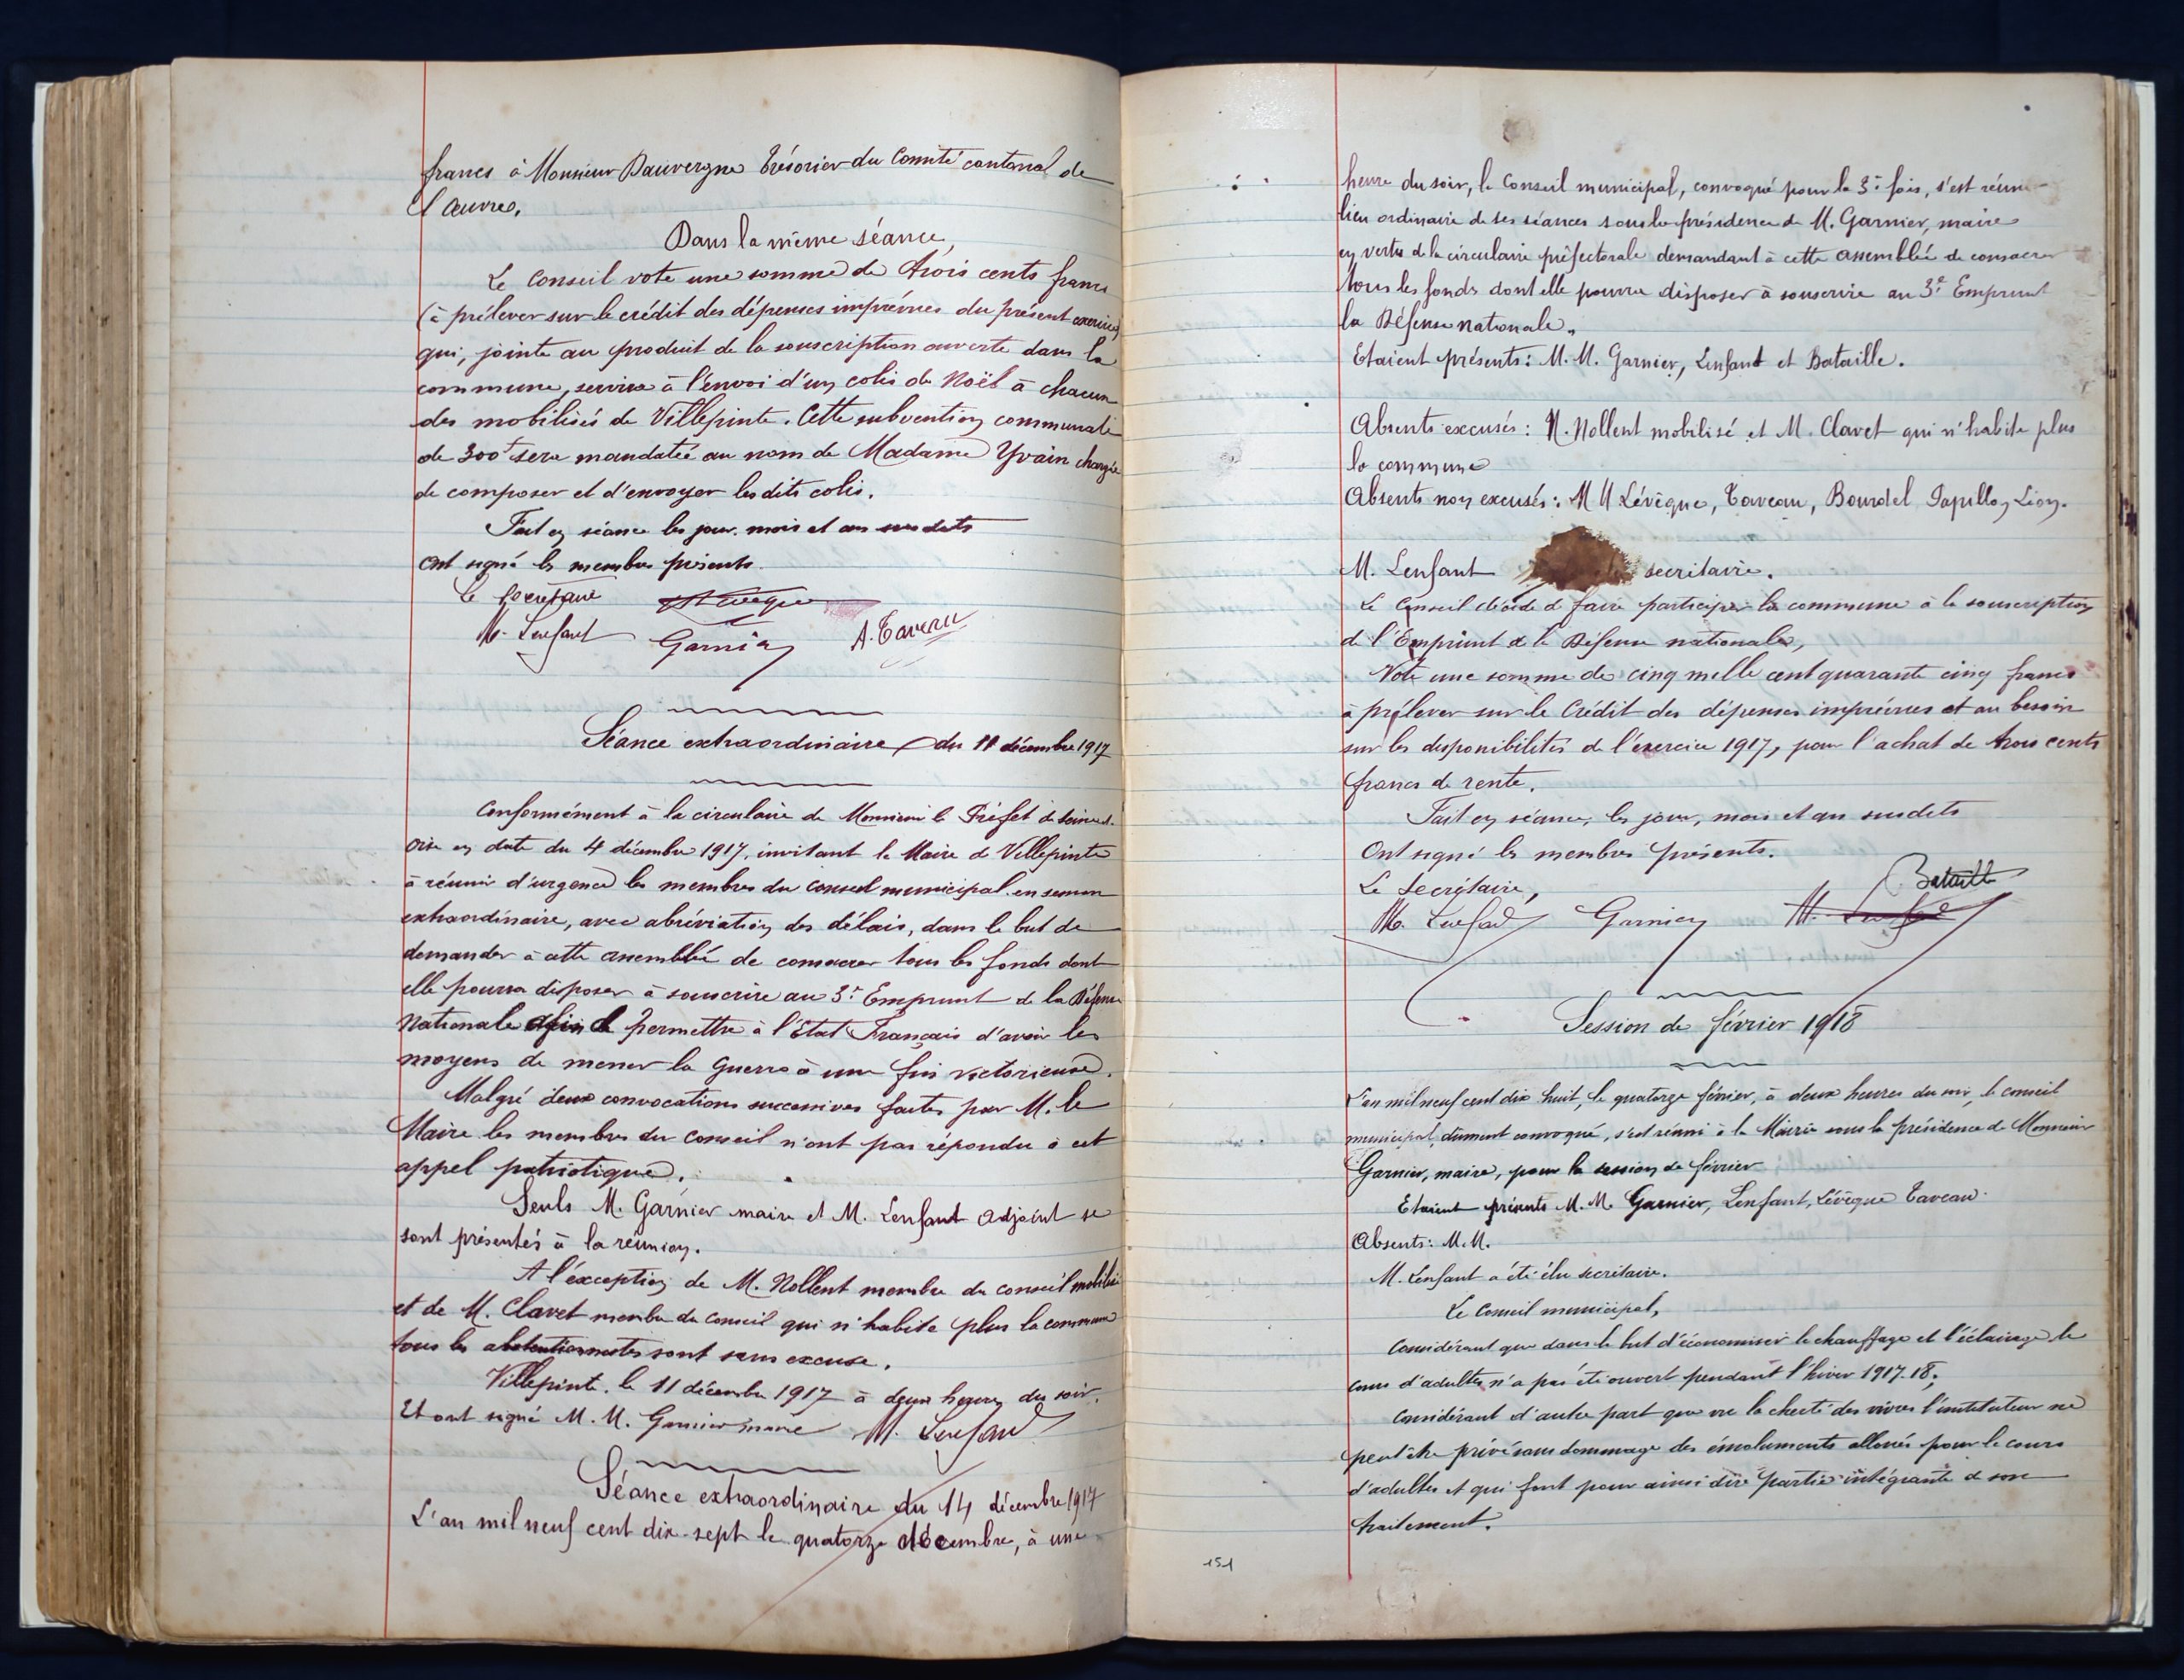 francs à Monsieur Dauvergne Trésorier du Comité cantonal de
l'Œuvre.
Dans la même séance,
Le Conseil vote une somme de trois cents francs
(à prélever sur le crédit des dépenses imprévues du présent exercice)
qui, jointe au produit de la souscription ouverte dans la
commune, servira à l'envoi d'un colis de Noël à chacun
des mobilisés de Villepinte. Cette subvention communale
de 300f sera mandatée au nom de Madame Yvain chargée
de composer et d'envoyer les dits colis.
Fait en séance les jour, mois et an susdits
ont signé les membres présents.
Le Secrétaire
M. Lenfant Garnier A. Taveau
Séance extraordinaire du 11 décembre 1917
Conformément à la circulaire de Monsieur le Préfet de Seine et
Oise en date du 4 décembre 1917, invitant le Maire de Villepinte
à réunir d'urgence les membres du Conseil municipal en session
extraordinaire, avec abréviation des délais, dans le but de
demander à cette assemblée de consacrer tous les fonds dont
elle pourra disposer à souscrire au 3e Emprunt de la Défense
Nationale afin de permettre à l'Etat Français d'avoir les
moyens de mener la Guerre à une fin victorieuse.
Malgré deux convocations successives faites par M. le
Maire les membres du Conseil n'ont pas répondu à cet
appel patriotique.
Seuls M. Garnier maire et M. Lenfant adjoint se
sont présentés à la réunion.
A l'exception de M. Nollent membre du conseil mobilisé
et de M. Clavet membre du conseil qui n'habite plus la commune
tous les abstentionnistes sont sans excuse.
Villepinte, le 11 décembre 1917 à deux heures du soir.
Et ont signé M. M. Garnier maire M. Lenfant
Séance extraordinaire du 14 décembre 1917
L'an mil neuf cent dix-sept le quatorze décembre, à une
heure du soir, le Conseil municipal, convoqué pour la 3e fois, s'est réuni
lieu ordinaire de ses séances sous la présidence de M. Garnier, maire
en vertu de la circulaire préfectorale demandant à cette assemblée de consacrer
tous les fonds dont elle pourra disposer à souscrire au 3e Emprunt
la Défense nationale.
Etaient présents: M. M. Garnier, Lenfant et Bataille.
Absents excusés: M. Nollent mobilisé et M. Clavet qui n'habite plus
la commune
Absents non excusés: M M Lévêque, Taveau, Bourdel Papillon Léon.
M. Lenfant secrétaire.
Le Conseil décide de faire participer la commune à la souscription
de l'Emprunt de la Défense nationale,
Vote une somme de cinq mille cent quarante cinq francs
à prélever sur le Crédit des dépenses imprévues et au besoin
sur les disponibilités de l'exercice 1917, pour l'achat de trois cents
francs de rente.
Fait en séance, les jour, mois et an susdits
Ont signé les membres présents.
Le Secrétaire, Bataille
M. Lenfant Garnier M. Lenfant
Session de février 1918
L'an mil neuf cent dix huit, le quatorze février, à deux heures du soir, le conseil
municipal, dûment convoqué, s'est réuni à la Mairie sous la présidence de Monsieur
Garnier, maire, pour la session de février
Etaient présents M. M. Garnier, Lenfant, Lévêque Taveau.
Absents: M. M.
M. Lenfant a été élu secrétaire.
Le Conseil municipal,
Considérant que dans le but d'économiser le chauffage et l'éclairage le
cours d'adultes n'a pas été ouvert pendant l'hiver 1917-18;
Considérant d'autre part que vu la cherté des vivres l'instituteur ne
peut être privé sans dommage des émoluments alloués pour le cours
d'adultes et qui font pour ainsi dire partie intégrante de son
traitement.
151